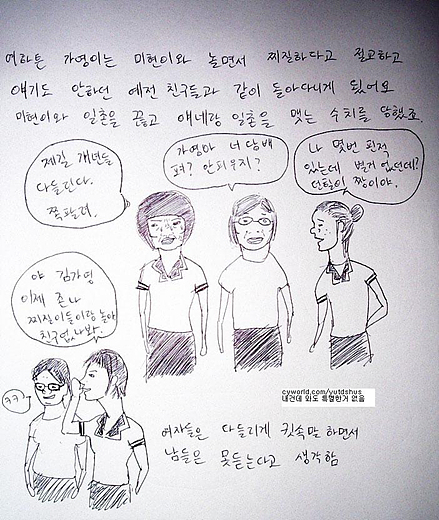 여하튼 가영이는 미현이와 놀면서 찌질하다고 절교하고
얘기도 안하던 예전 친구들과 같이 돌아다니게 됬어요
미현이와 일촌을 끊고 얘네랑 일촌을 맺는 수치를 당했죠.
제길 개년들
다 들린다.
쪽팔려.
가영아 너 담배
펴? 안피우지?
나 몇번 펴전
있는데 별거 없던데?
던힐이 짱이야.
야 김가영
이제 존나
찌질이들이랑 놀아
친구없나봐.
ㅋㅋ
cyworld.com/yutdshus
내건데 와도 특별한거 없음
여자들은 다들리게 귓속말 하면서
남들은 못듣는다고 생각함